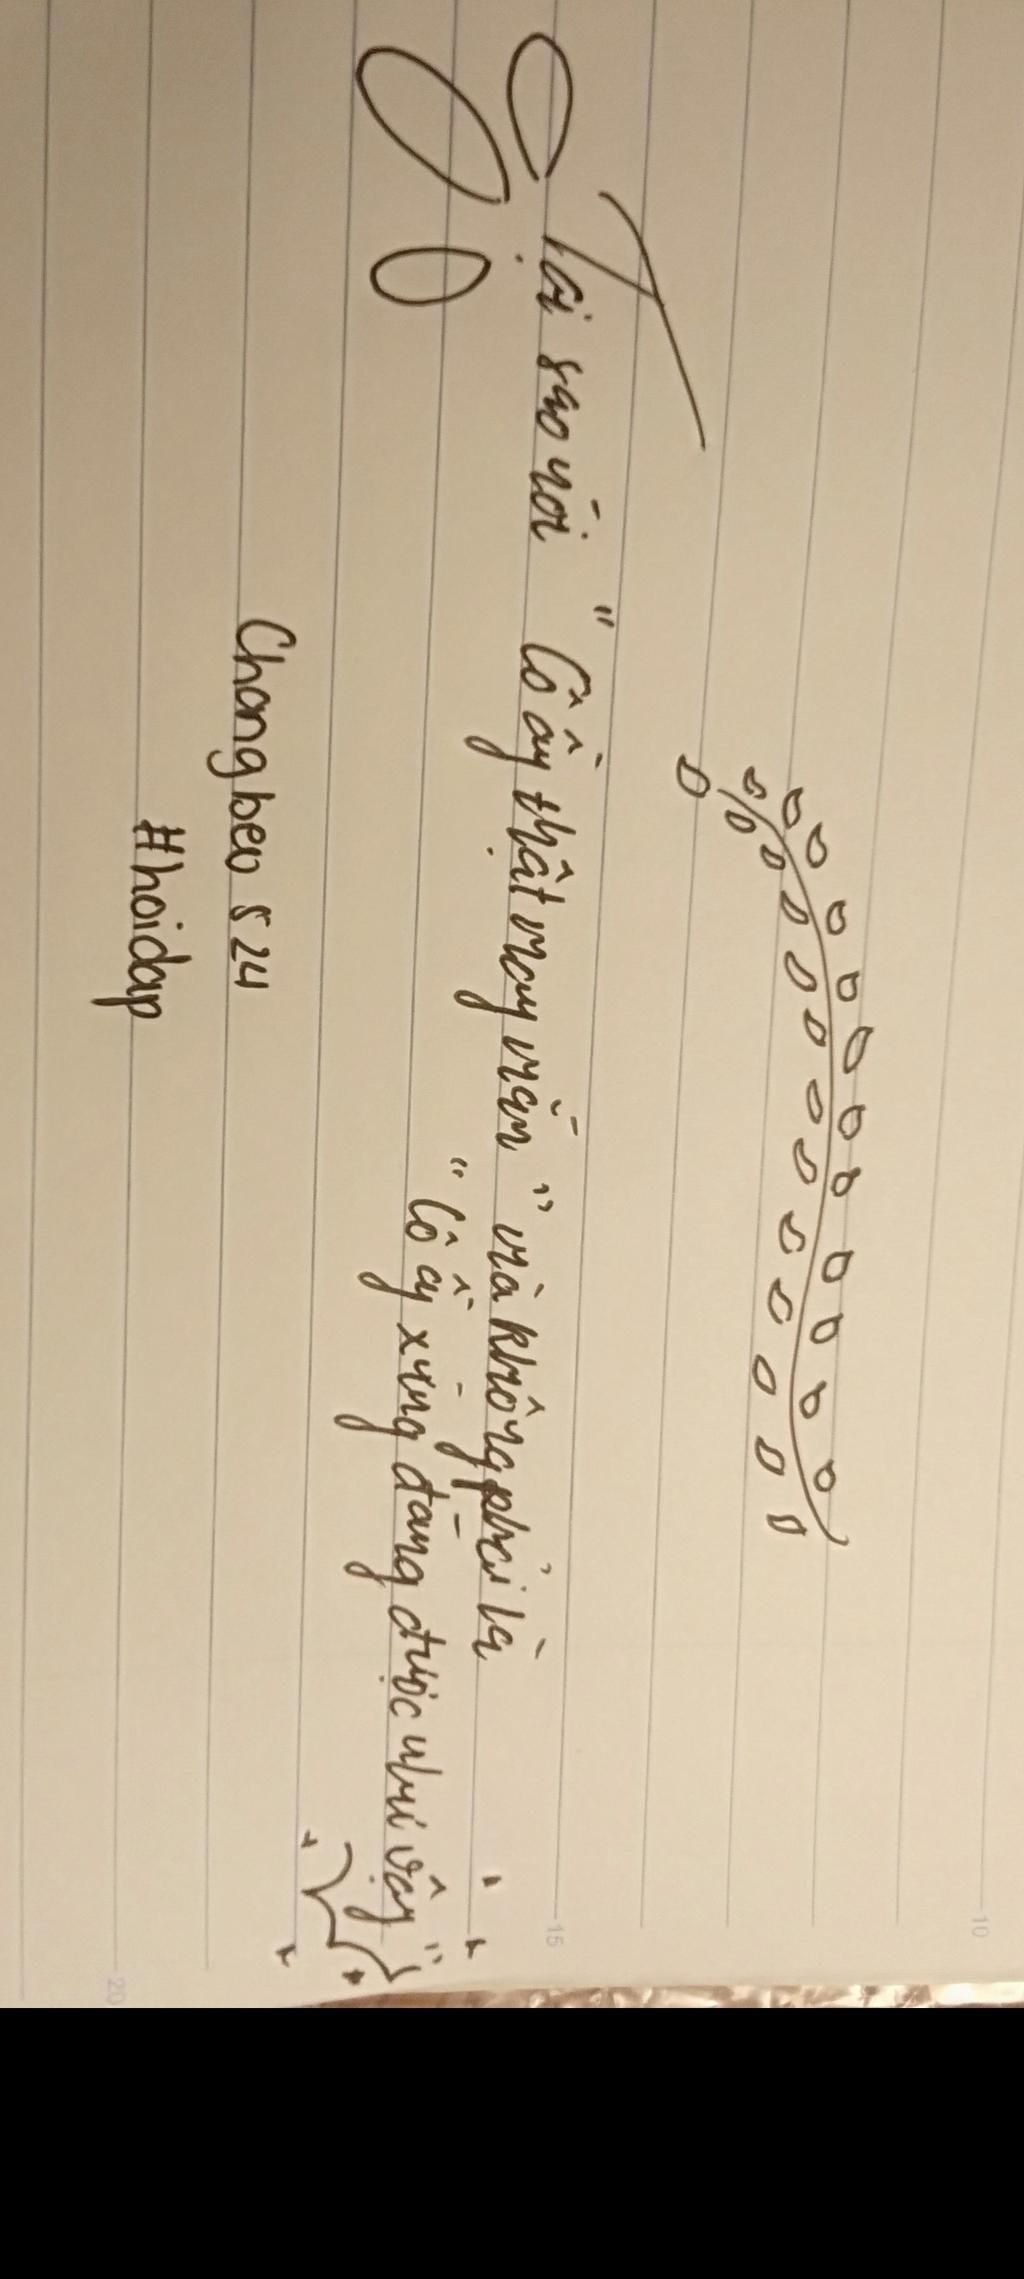 Tại sao nói " Cô ấy thật may mắn " mà không phải là
" Cô ấy xứng đáng được như vậy "
Changbeo 524
#hoidap
10
15
20